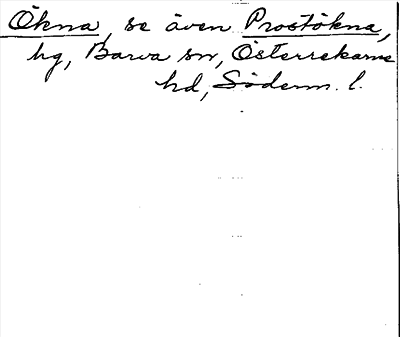 Ökna, se även Prostökna,
hg, Barva sn, Österrekarne
hd, Söderm. l.